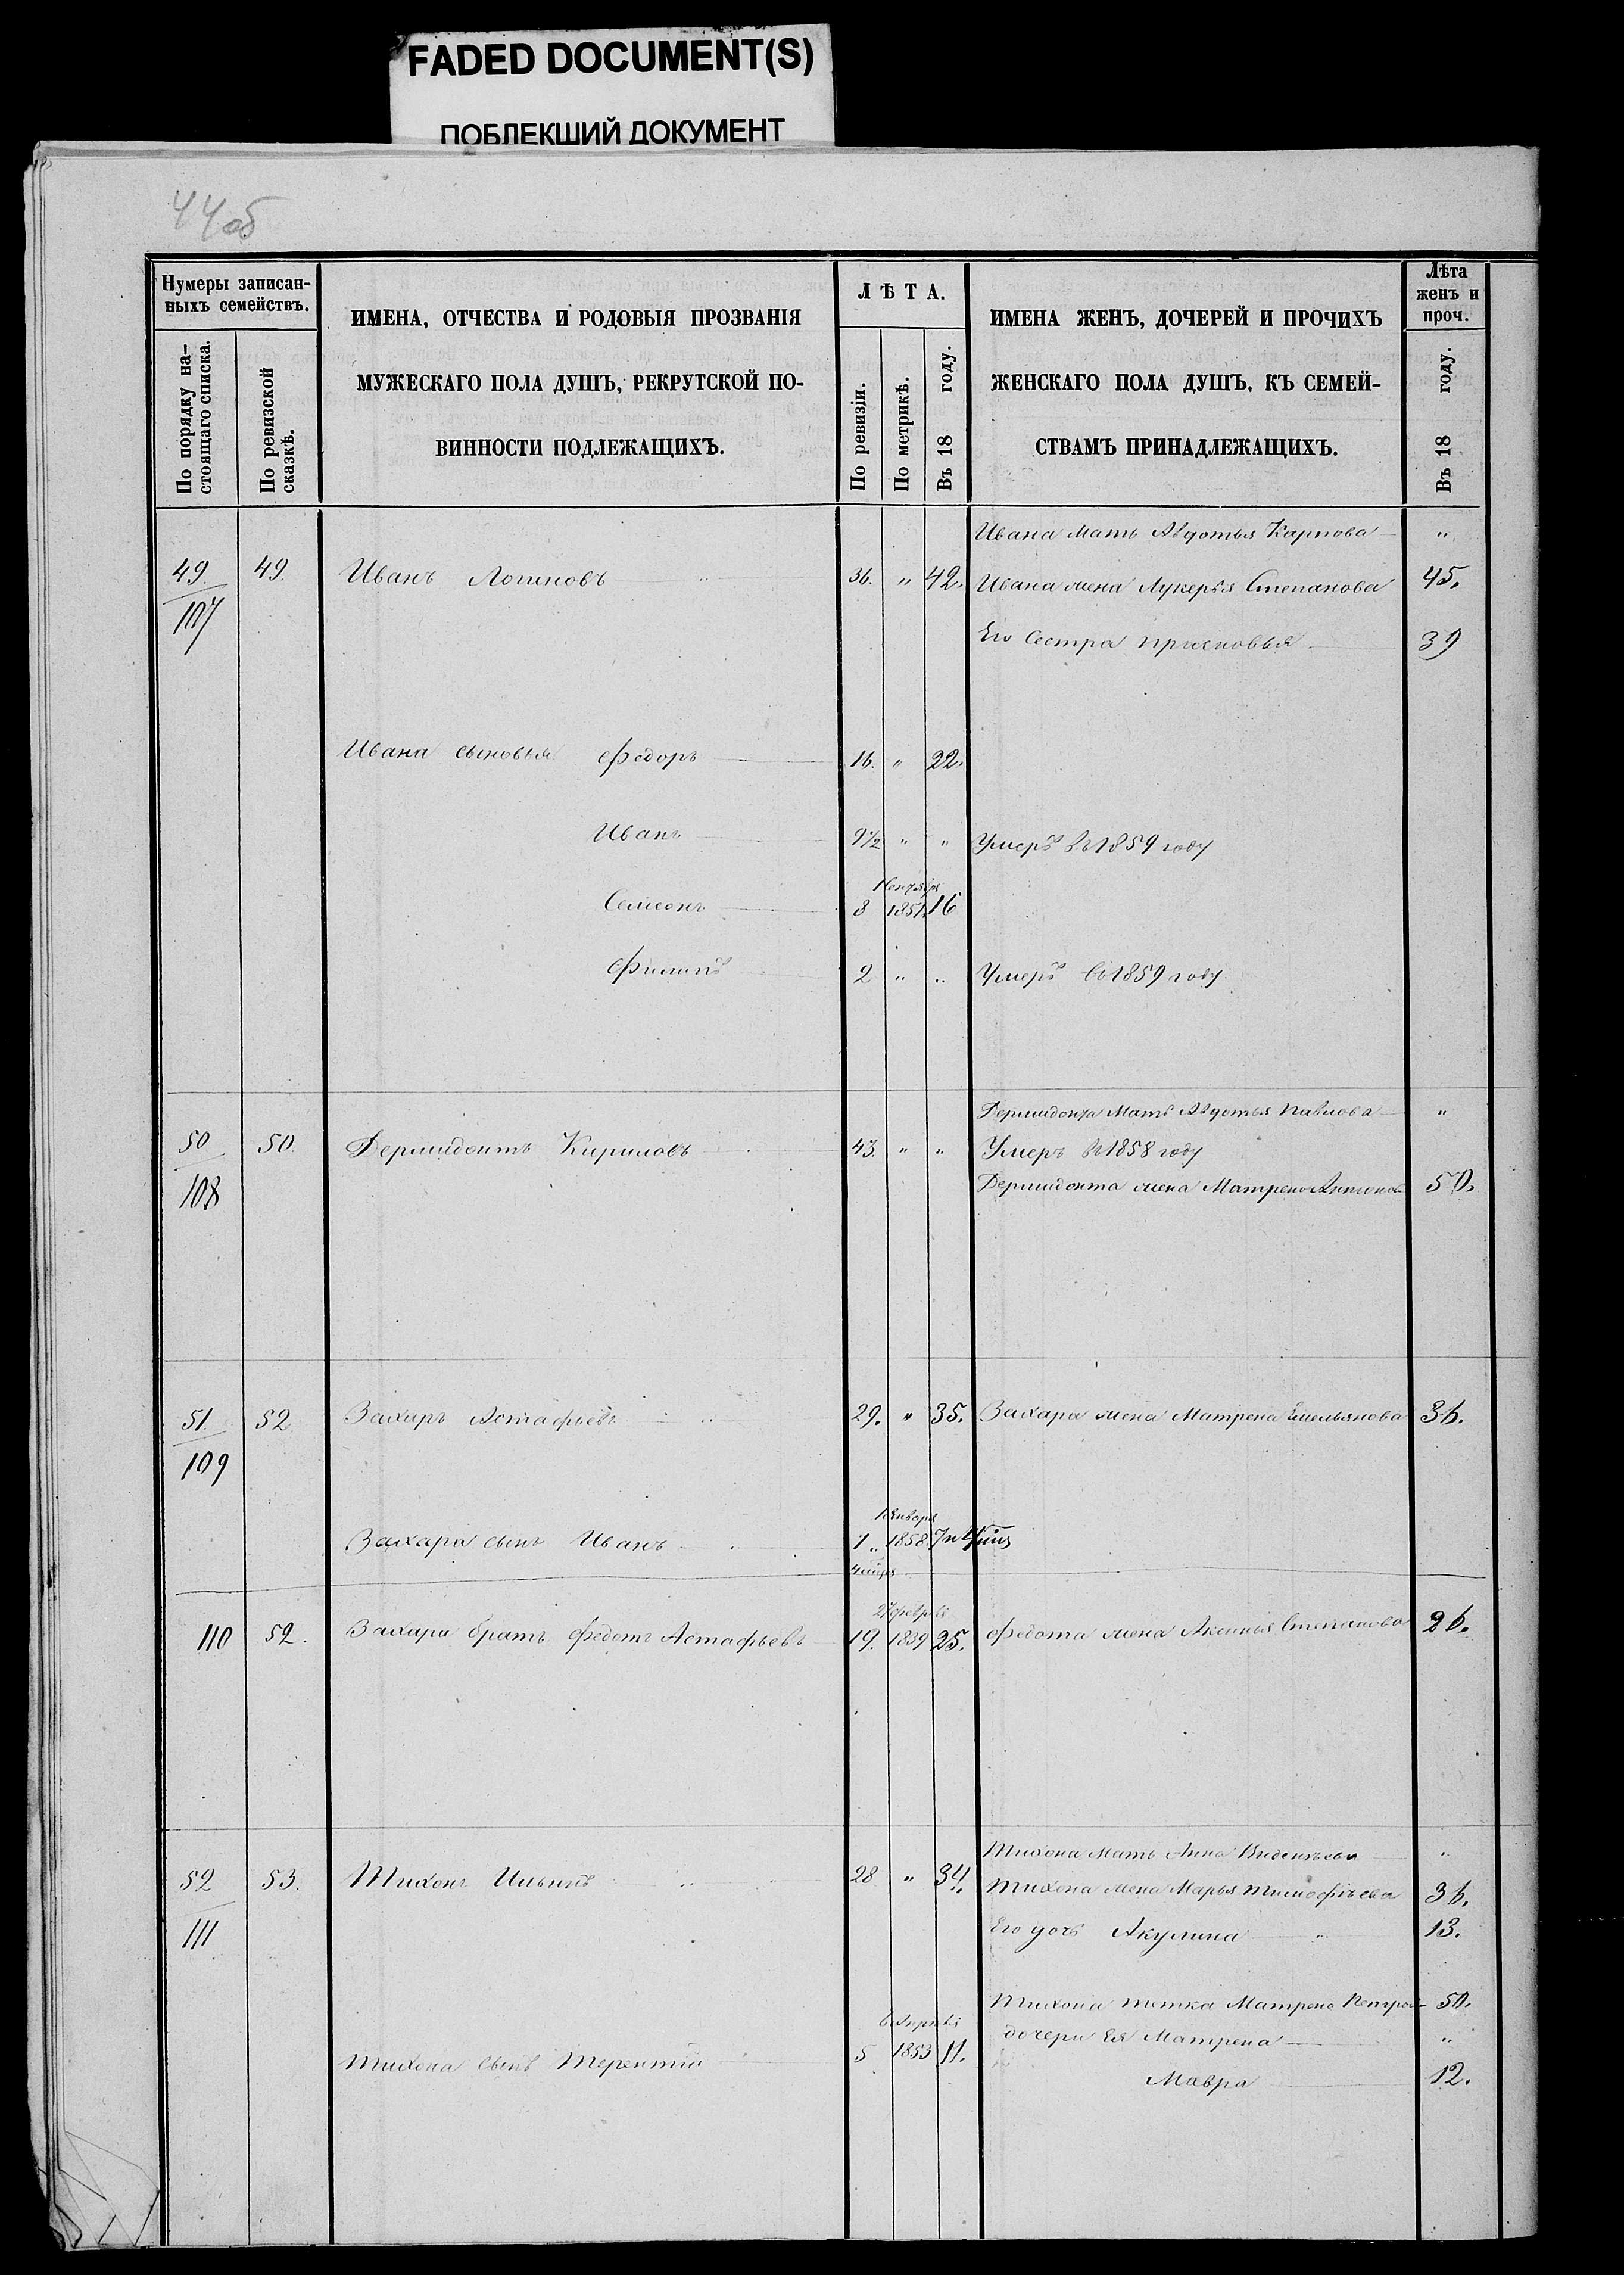 FADED DOCUMENT(S)
ПОБЛЕКШИЙ ДОКУМЕНТ
44об
Нумеры записан-
ныхъ семействъ.
По порядку на-
стоящаго списка.
По ревизской
сказкѣ.
ИМЕНА, ОТЧЕСТВА И РОДОВЫЯ ПРОЗВАНІЯ
МУЖЕСКАГО ПОЛА ДУШЪ, РЕКРУТСКОЙ ПО-
ВИННОСТИ ПОДЛЕЖАЩИХЪ.
ЛѢТА.
По ревизіи.
По метрикѣ.
Въ 18 году.
ИМЕНА ЖЕНЪ, ДОЧЕРЕЙ И ПРОЧИХЪ
ЖЕНСКАГО ПОЛА ДУШЪ, КЪ СЕМЕЙ-
СТВАМЪ ПРИНАДЛЕЖАЩИХЪ.
Лѣта
женъ и
проч.
Въ 18 году.
Ивана мать Авдотья Карпова "
49 49. Иванъ Логиновъ 36. " 42. Ивана жена Лукерья Степанова 45.
107
Его сестра Прасковья 39
Ивана сыновья Федоръ 16. " 22.
Иванъ 9½ " " Умеръ въ 1859 году
Семенъ 8 1851 16
Филипъ 2 " " Умеръ въ 1859 году
Дермидонта мать Авдотья Павлова "
50 50. Дермидонтъ Кириловъ 43. " " Умеръ въ 1858 году
108 Дермидонта жена Матрена Антонова 50.
51. 52 Захаръ Астафьевъ 29. " 35. Захара жена Матрена Емельянова 36.
109
1 Января
Захара сынъ Иванъ 1 " 1858
27 февраля
110 52. Захара братъ Федотъ Астафьевъ 19. 1839 25. Федота жена Аксинья Степанова 26.
Тихона мать Анна "
52 53. Тихонъ Ильинъ 28 " 34. Тихона жена Марья Тимофѣева 36.
111 Его дочь Акулина 13.
Тихона тетка Матрена 50.
6 Апрѣля дочери Ея Матрена "
Тихона сынъ Терентій 5 1853 11.
Мавра 12.